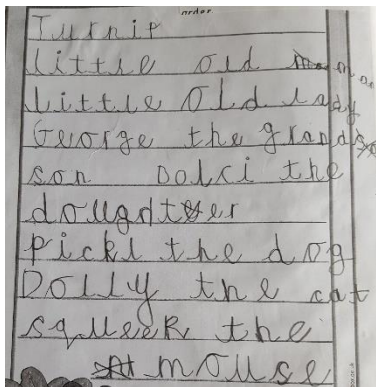 order.
Turnip
little old man
little old lady
George the grand
son Dolci the
dougdter
Pickl the dog
Dolly the cat
squeek the
mouse